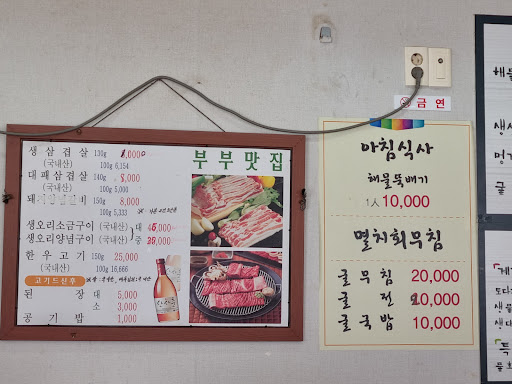 부부맛집
생삼겹살 130g 8,000
(국내산) 100g 6,154
대패삼겹살 140g
(국내산) 100g 5,000
8,000
100g 5,333
생오리소금구이 (국내산) 대
생오리양념구이 (국내산) 중
한우고기 150g 25,000
(국내산) 100g 16,666
고기드신후
된장 대 5,000
소 3,000
공기밥 1,000
금연
아침식사
해물뚝배기
1人 10,000
멸치회무침
굴무침 20,000
굴전 10,000
굴국밥 10,000